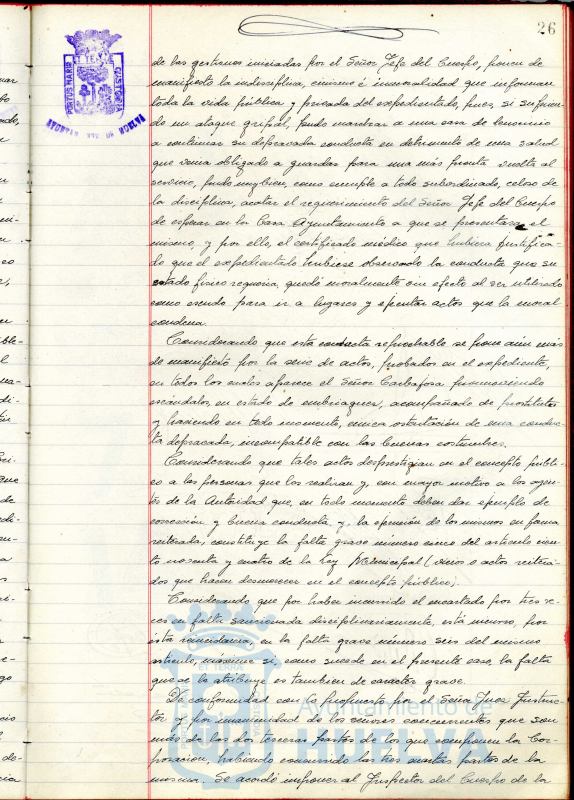 26
PORTUS MARIS ET TERRAE CUSTODIA
AYUNTAMIENTO DE HUELVA
de las gestiones iniciadas por el Señor Jefe del Cuerpo, ponen de
manifiesto la indisciplina, cinismo é inmoralidad que informan
toda la vida pública y privada del expedientado, pues, si sufrien-
do un ataque gripal, pudo marchar a una casa de lenocinio
a continuar su depravada conducta en detrimento de una salud
que venia obligado a guardar para una más pronta vuelta al
servicio, pudo muy bien, como cumple a todo subordinado, celoso de
la disciplina, acatar el requerimiento del Señor Jefe del Cuerpo
de esperar en la Casa Ayuntamiento a que se presentase el
mismo, y por ello, el certificado médico que hubiera justifica-
do que el expedientado hubiese observado la conducta que su
estado físico requeria, quedó moralmente sin efecto al ser utilizado
como escudo para ir a lugares y ejecutar actos que la moral
condena.
Considerando que esta conducta reprochable se pone aún más
de manifiesto por la serie de actos, probados en el expediente,
en todos los cuales aparece el Señor Carbajosa promoviendo
escándalos, en estado de embriaguez, acompañado de prostitutas
y haciendo en todo momento, cinica ostentación de una conduc-
ta depravada, incompatible con las buenas costumbres.
Considerando que tales actos desprestigian en el concepto públi-
co a las personas que los realizan y, con mayor motivo a los agen-
tes de la Autoridad que, en todo momento deben dar ejemplo de
corrección y buena conducta, y, la ejecución de los mismos en forma
reiterada, constituye la falta grave número cinco del articulo cien-
to noventa y cuatro de la Ley Municipal (vicios o actos reitera-
dos que hacen desmerecer en el concepto público).
Considerando que por haber incurrido el encartado por tres ve-
ces en falta sancionada disciplinariamente, está incurso, por
esta reincidencia, en la falta grave número seis del mismo
articulo, máxime si, como sucede en el presente caso, la falta
que se le atribuye es tambien de caracter grave.
De conformidad con lo propuesto por el Señor Juez Instruc-
tor y por unanimidad de los señores concurrentes que son
más de las dos terceras partes de los que componen la Cor-
poración, habiendo concurrido las tres cuartas partes de la
misma. Se acordó imponer al Inspector del Cuerpo de la
Ayuntamiento de
HUELVA